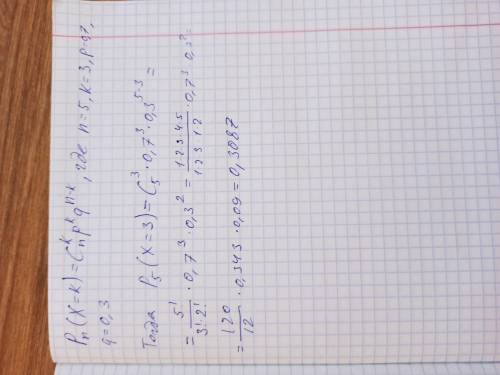 Pₙ(X=k)=Cₙᵏpᵏqⁿ⁻ᵏ, где n=5, k=3, p=0,7,
q=0,3
Тогда P₅(X=3)=C₅³·0,7³·0,3⁵⁻³=
=5!/(3!·2!)·0,7³·0,3²=(1·2·3·4·5)/(1·2·3·1·2)·0,7³·0,3²=
=120/12·0,343·0,09=0,3087